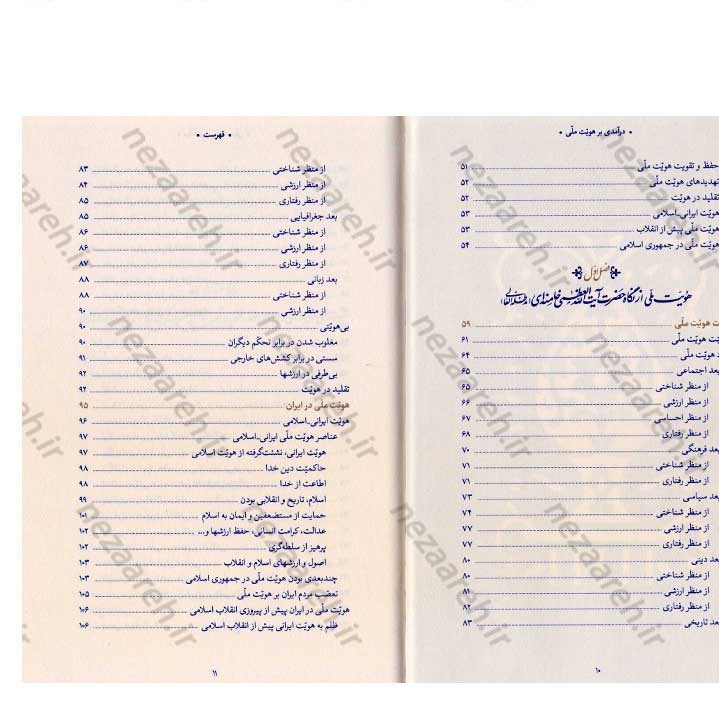 • درآمدی بر هویّت ملّی •
حفظ و تقویت هویّت ملّی ۵۱
تهدیدهای هویّت ملّی ۵۲
تقلید در هویّت ۵۲
هویّت ایرانی‌ـ‌اسلامی ۵۳
هویّت ملّی پیش از انقلاب ۵۳
هویّت ملّی در جمهوری اسلامی ۵۴
فصل اول
هویّت ملّی از نگاه حضرت آیت‌الله‌العظمی خامنه‌ای (مدظله‌العالی)
هویّت ملّی ۵۹
هویّت ملّی ۶۱
هویّت ملّی ۶۴
بعد اجتماعی ۶۵
از منظر شناختی ۶۵
از منظر ارزشی ۶۶
از منظر احساسی ۶۷
از منظر رفتاری ۶۸
بعد فرهنگی ۷۰
از منظر شناختی ۷۱
از منظر رفتاری ۷۱
بعد سیاسی ۷۳
از منظر شناختی ۷۴
از منظر ارزشی ۷۷
از منظر رفتاری ۷۷
بعد دینی ۸۰
از منظر شناختی ۸۰
از منظر ارزشی ۸۱
از منظر رفتاری ۸۲
بعد تاریخی ۸۳
۱۰
• فهرست •
از منظر شناختی ۸۳
از منظر ارزشی ۸۴
از منظر رفتاری ۸۵
بعد جغرافیایی ۸۵
از منظر شناختی ۸۶
از منظر ارزشی ۸۶
از منظر رفتاری ۸۷
بعد زبانی ۸۸
از منظر شناختی ۸۸
از منظر ارزشی ۹۰
بی‌هویّتی ۹۰
مغلوب شدن در برابر تحکّم دیگران ۹۰
سستی در برابر کشش‌های خارجی ۹۱
بی‌طرفی در ارزشها ۹۲
تقلید در هویّت ۹۲
هویّت ملّی در ایران ۹۵
هویّت ایرانی‌ـ‌اسلامی ۹۶
عناصر هویّت ملّی ایرانی‌ـ‌اسلامی ۹۷
هویّت ایرانی، نشئت‌گرفته از هویّت اسلامی ۹۷
حاکمیّت دین خدا ۹۸
اطاعت از خدا ۹۸
اسلام، تاریخ و انقلابی بودن ۹۹
حمایت از مستضعفین و ایمان به اسلام ۱۰۱
عدالت، کرامت انسانی، حفظ ارزشها و... ۱۰۲
پرهیز از سلطه‌گری ۱۰۲
اصول و ارزشهای اسلام و انقلاب ۱۰۳
چندبعدی بودن هویّت ملّی در جمهوری اسلامی ۱۰۳
تعصّب مردم ایران بر هویّت ملّی ۱۰۵
هویّت ملّی در ایران پیش از پیروزی انقلاب اسلامی ۱۰۶
ظلم به هویّت ایرانی پیش از انقلاب اسلامی ۱۰۶
۱۱
nezaareh.ir